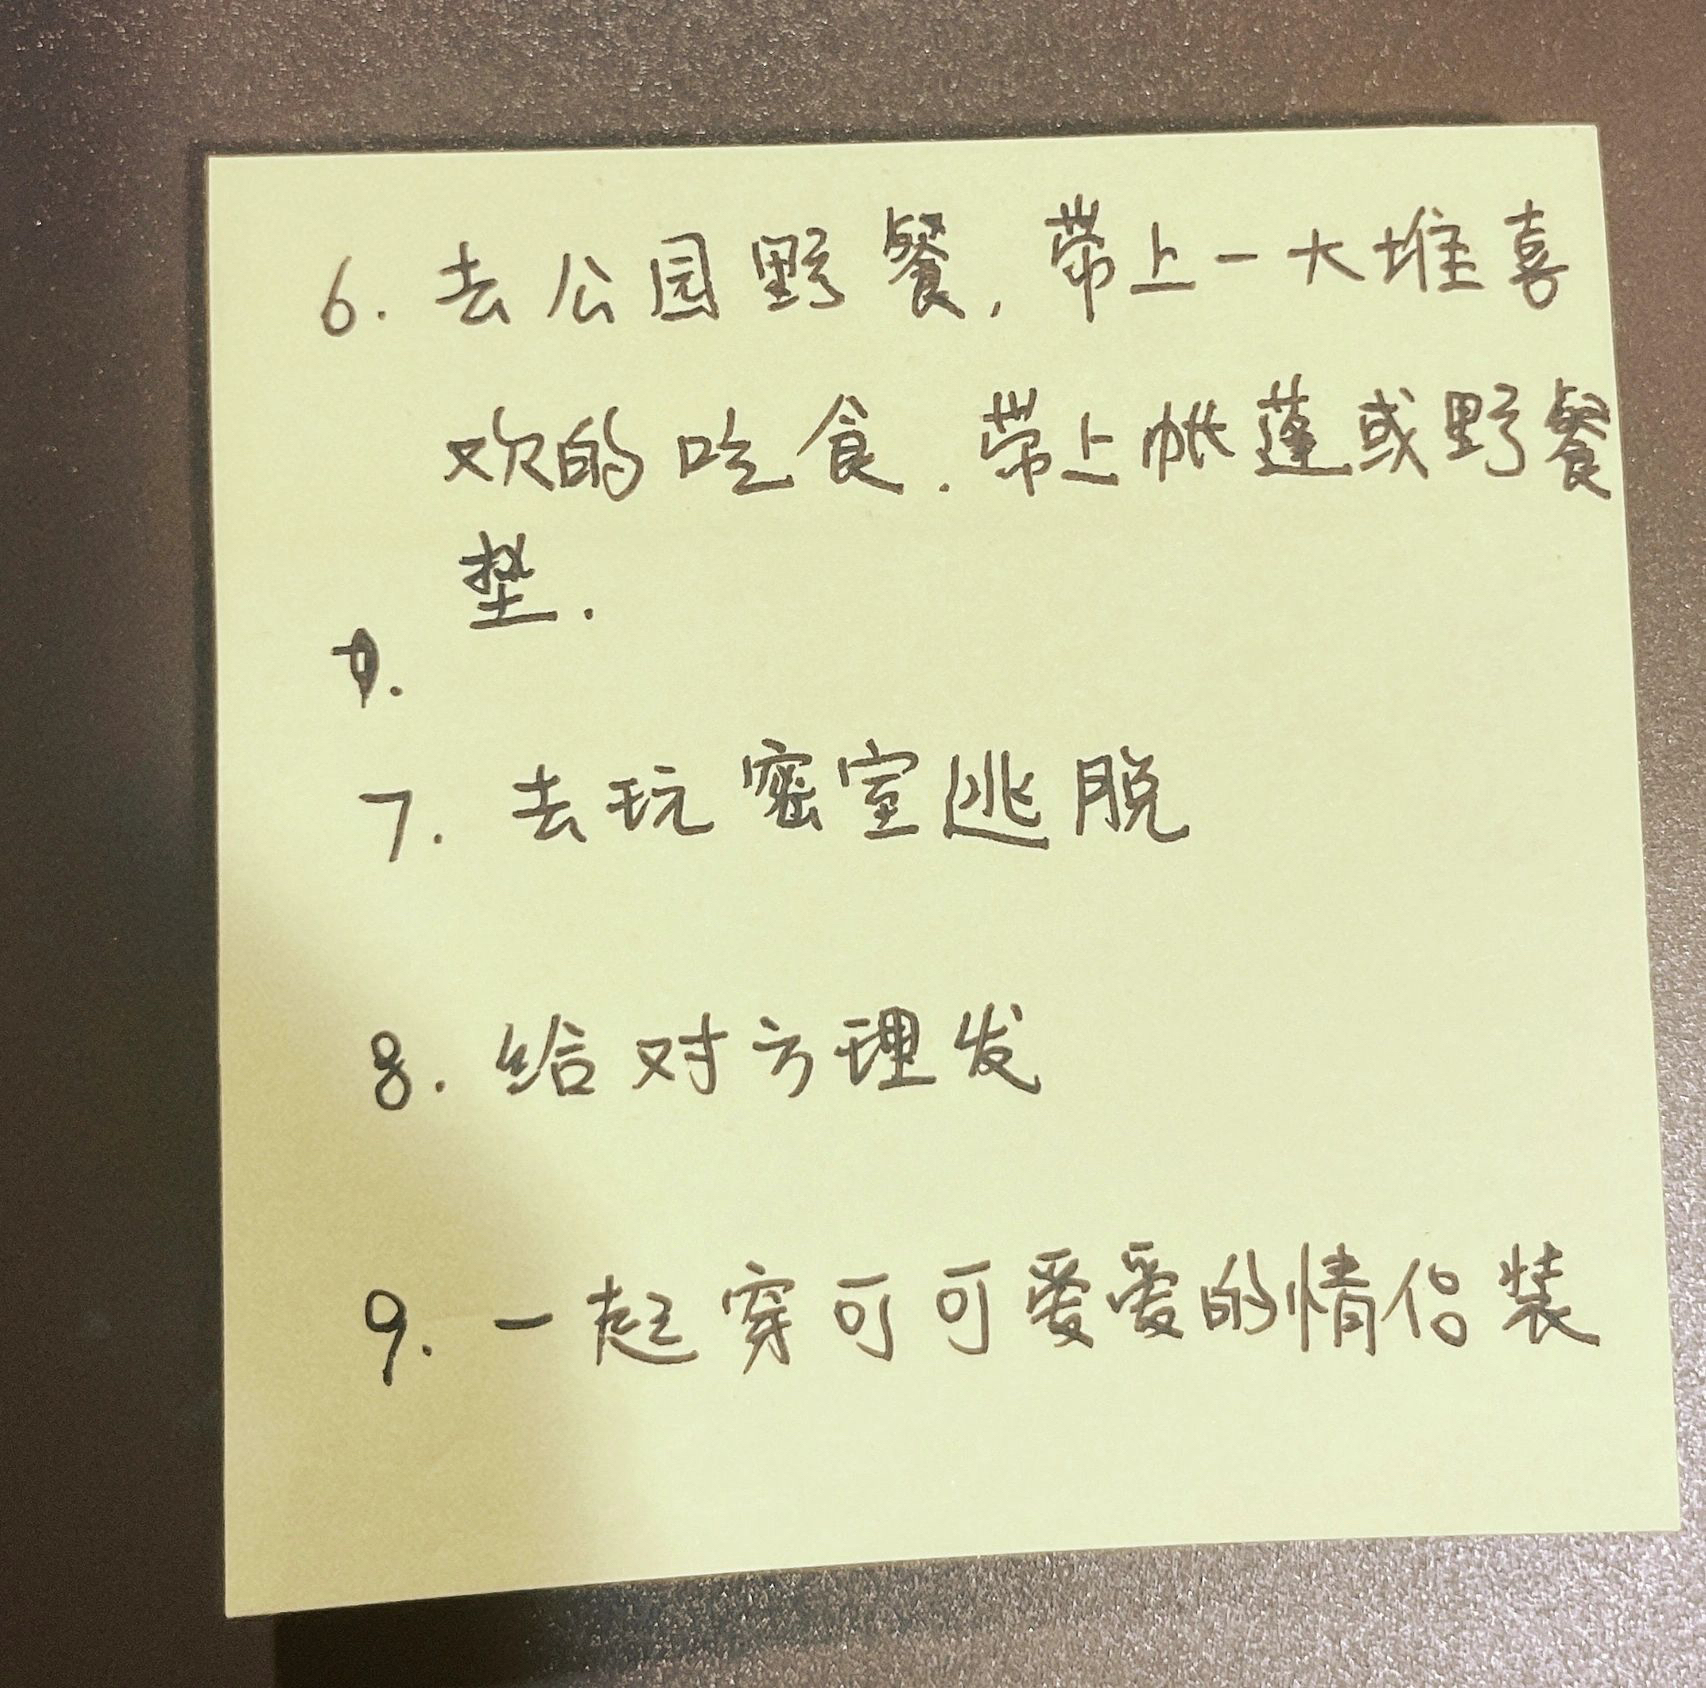 6. 去公园野餐，带上一大堆喜
欢的吃食．带上帐蓬或野餐
垫．
7. 去玩密室逃脱
8. 给对方理发
9. 一起穿可可爱爱的情侣装